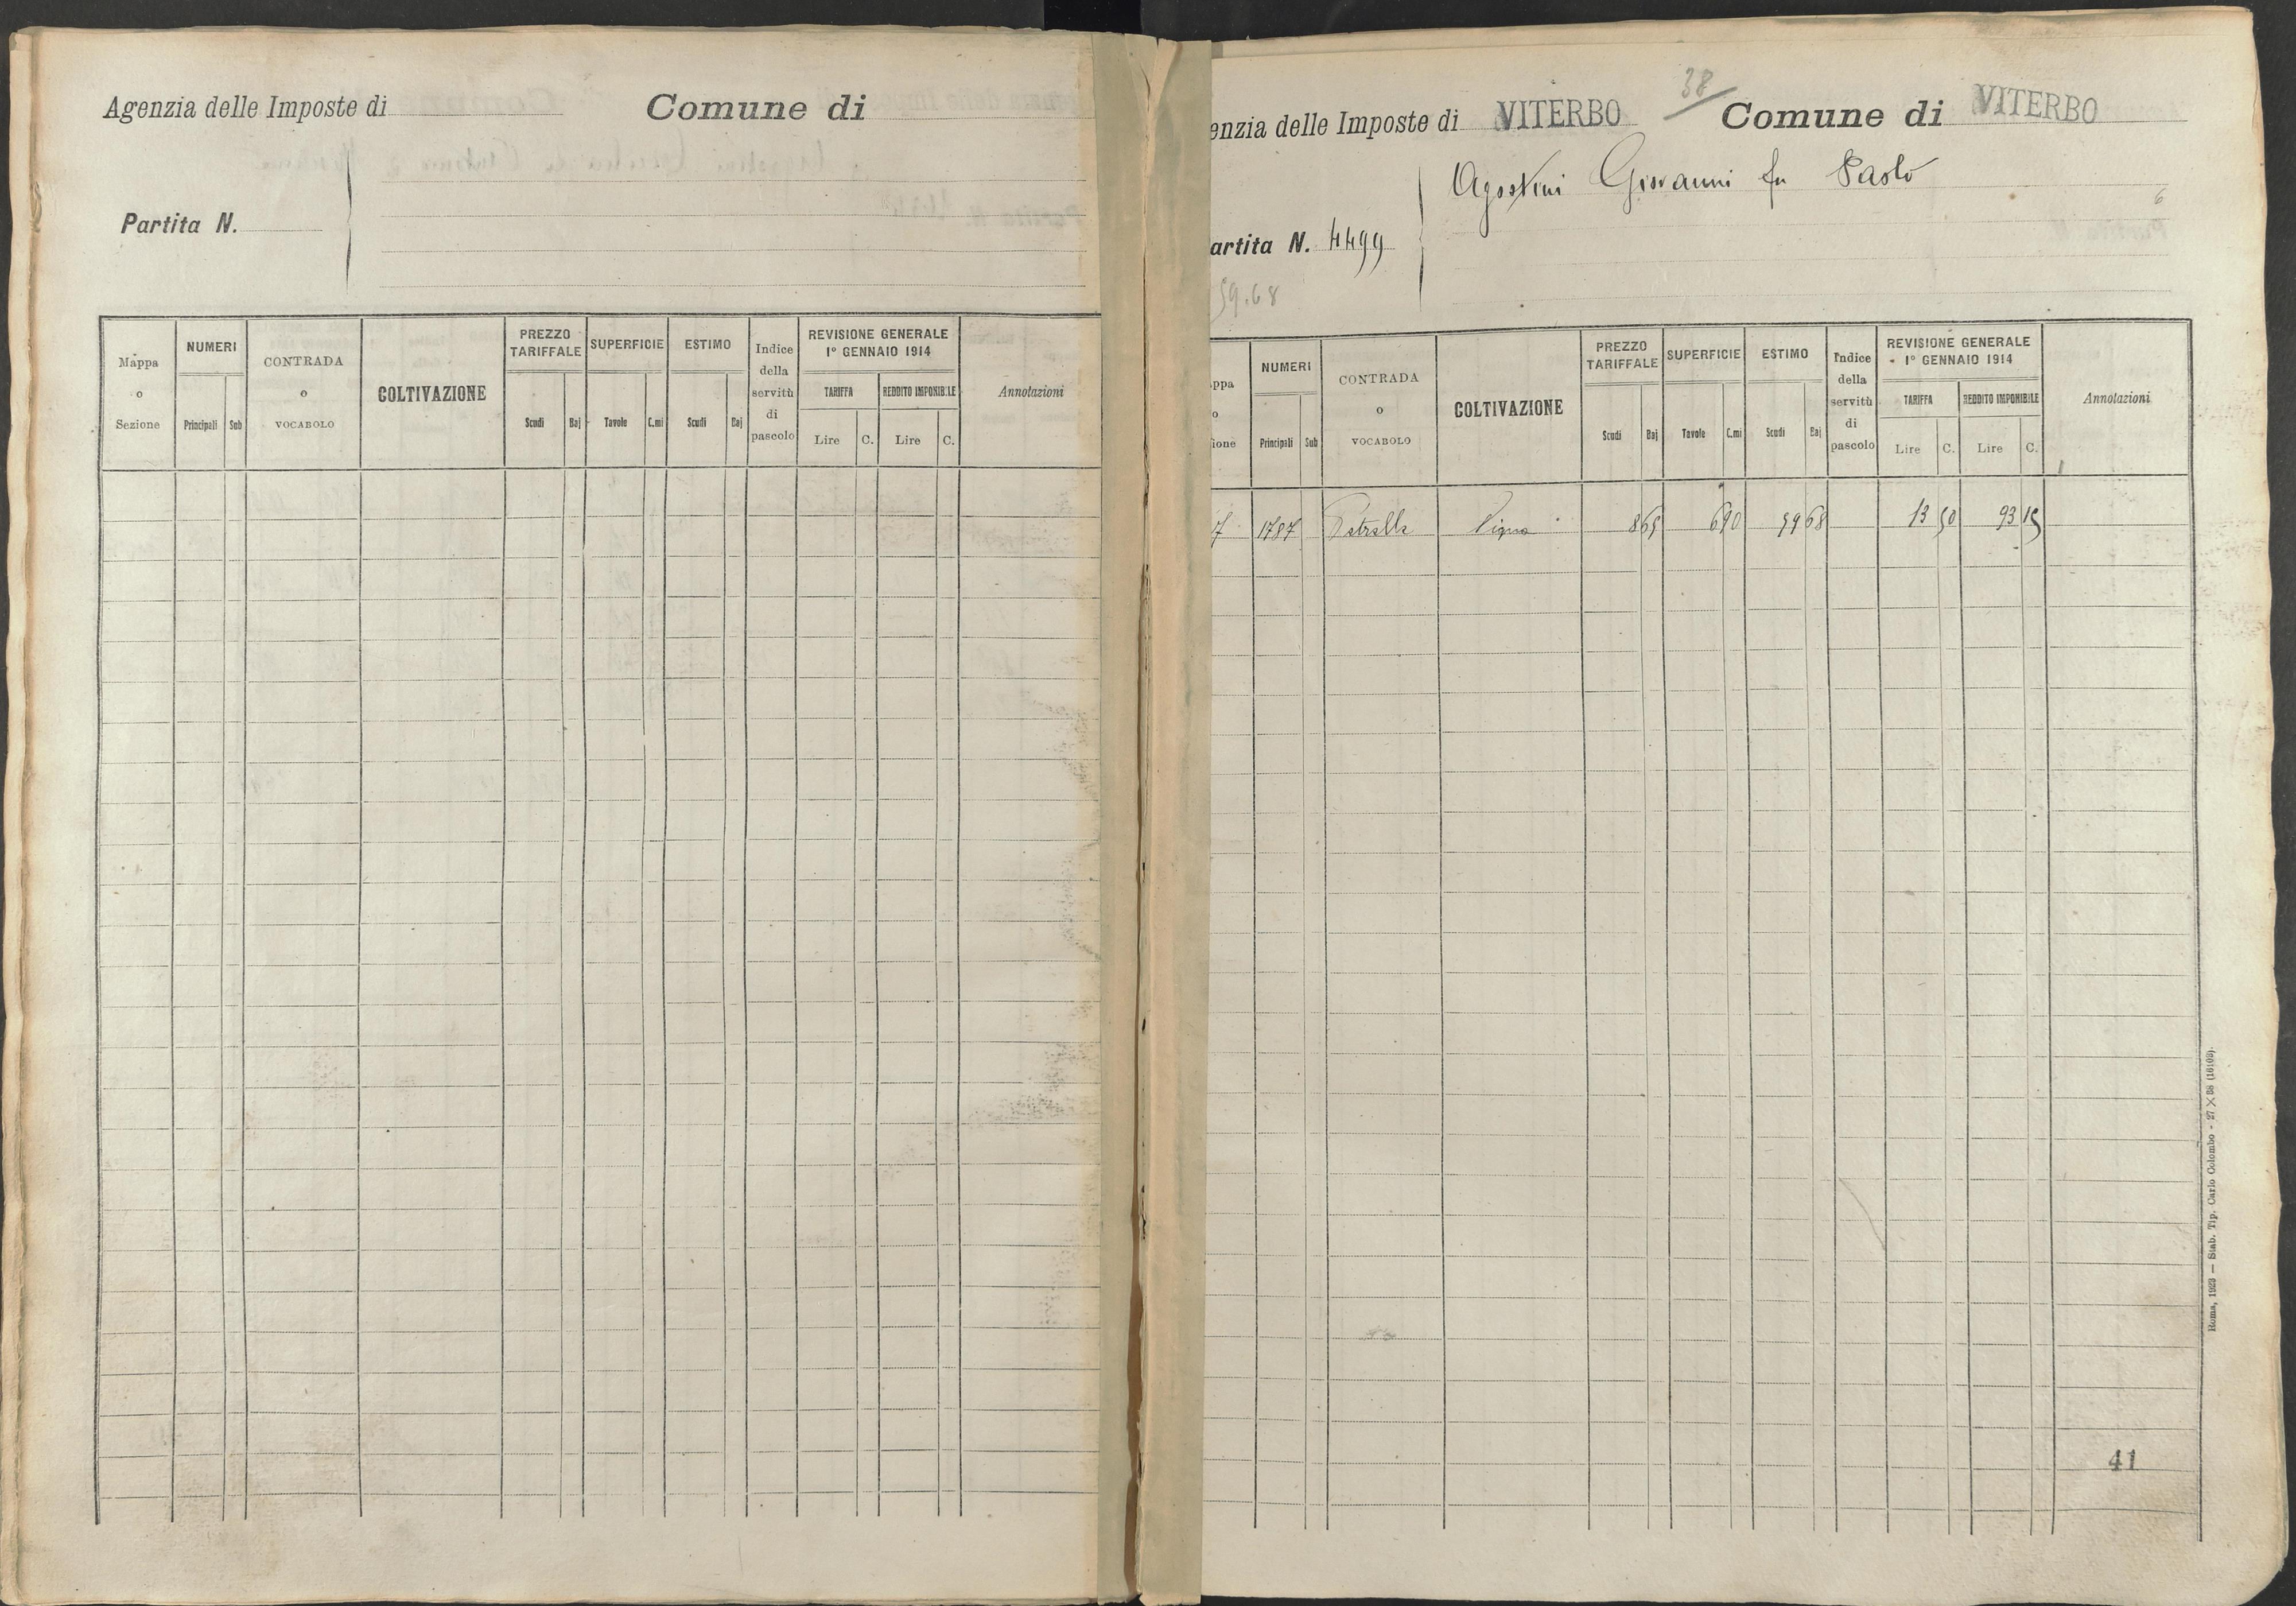 Agenzia delle Imposte di
Comune di
Partita N.
Mappa o Sezione
NUMERI
Principali Sub
CONTRADA o VOCABOLO
COLTIVAZIONE
PREZZO TARIFFALE
Scudi Baj
SUPERFICIE
Tavole C.mi
ESTIMO
Scudi Baj
Indice della servitù di pascolo
REVISIONE GENERALE
1° GENNAIO 1914
TARIFFA
Lire C.
REDDITO IMPONIBILE
Lire C.
Annotazioni
38
enzia delle Imposte di VITERBO Comune di VITERBO
Agostini Giovanni fu Paolo
6
artita N. 4499
59.68
ppa o ione
NUMERI
Principali Sub
CONTRADA o VOCABOLO
COLTIVAZIONE
PREZZO TARIFFALE
Scudi Baj
SUPERFICIE
Tavole C.mi
ESTIMO
Scudi Baj
Indice della servitù di pascolo
REVISIONE GENERALE
1° GENNAIO 1914
TARIFFA
Lire C.
REDDITO IMPONIBILE
Lire C.
Annotazioni
7 1787 Petrella Vigna 8 65 6 90 59 68 13 50 93 15
Roma, 1923 — Stab. Tip. Carlo Colombo - 27 X 38 (16103).
41